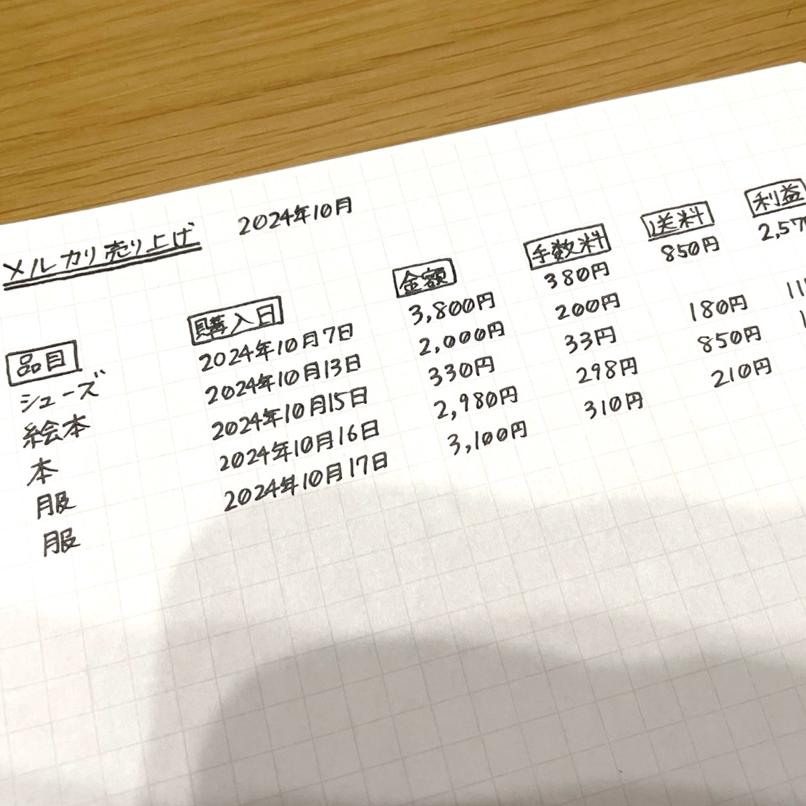 メルカリ売り上げ 2024年10月
品目 購入日 金額 手数料 送料 利益
シューズ 2024年10月7日 3,800円 380円 850円 2,57
絵本 2024年10月13日 2,000円 200円
本 2024年10月15日 330円 33円 180円 11
服 2024年10月16日 2,980円 298円 850円
服 2024年10月17日 3,100円 310円 210円